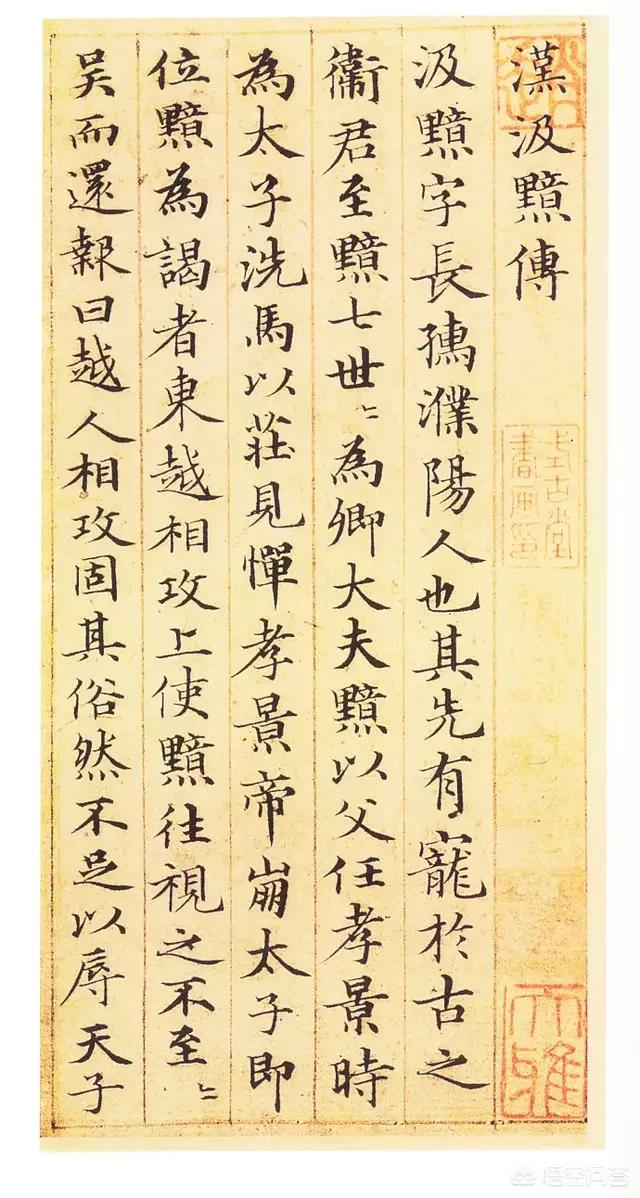 漢汲黯傳
汲黯字長孺濮陽人也其先有寵於古之
衞君至黯七世〻為卿大夫黯以父任孝景時
為太子洗馬以莊見憚孝景帝崩太子即
位黯為謁者東越相攻上使黯往視之不至〻
吳而還報曰越人相攻固其俗然不足以辱天子
式古堂
書画印
大雅
悟空问答